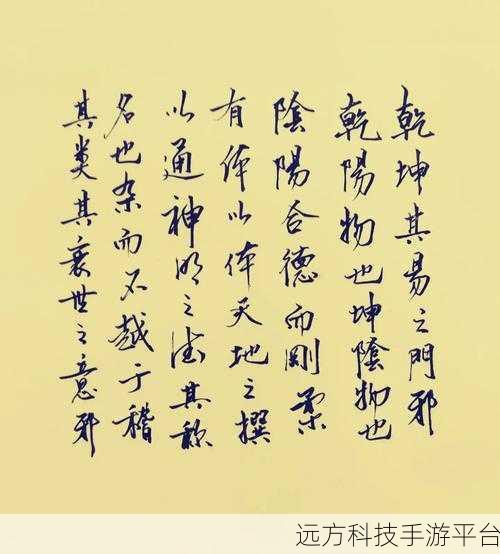 乾坤其易之門邪
乾陽物也坤陰物也
陰陽合德而剛柔
有体以体天地之撰
以通神明之德其称
名也杂而不越于稽
其类其衰世之意邪
远方科技手游平台